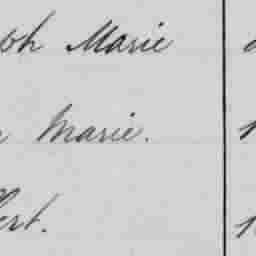 oh Marie
Marie.
ert.